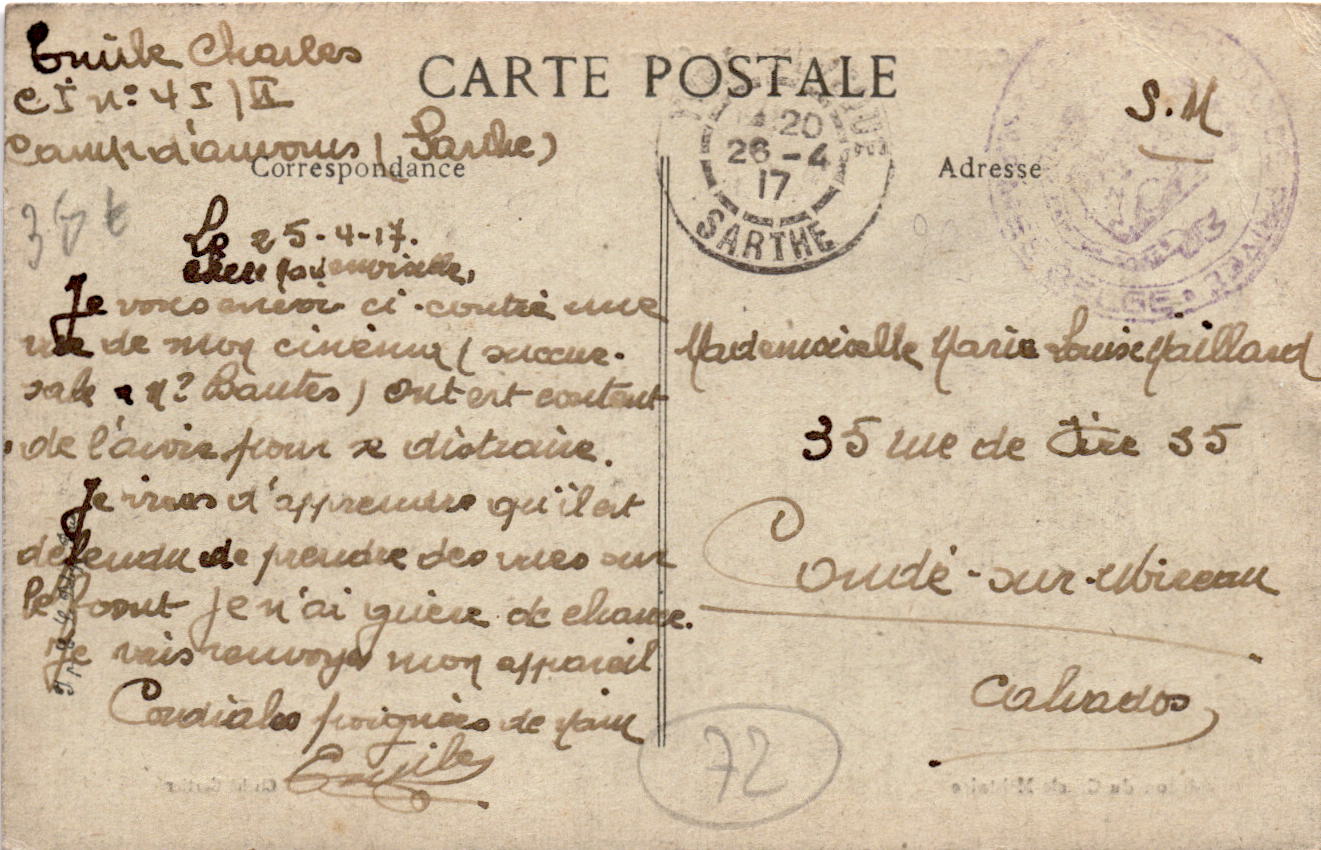 Emile Charles
CI n: 4 I / II
Camp d'auvours ( Sarthe )
CARTE POSTALE
Correspondance
Adresse
S.M
20
26 - 4
17
SARTHE
BELGE
Le 25-4-17.
chere mademoiselle,
Je vous envoi ci-contre une
vue de mon cinéma ( succur-
sale Bautes ) Ont est content
de l'avoir pour se distraire.
Je viens d'apprendre qu'il est
défendu de prendre des vues sur
le front Je n'ai guère de chance.
Je vais renvoyer mon appareil
Cordiales poignées de main
Emile
Mademoiselle Marie Louise Maillard
35 rue de 35
Condé-sur-Noireau
Calvados
72